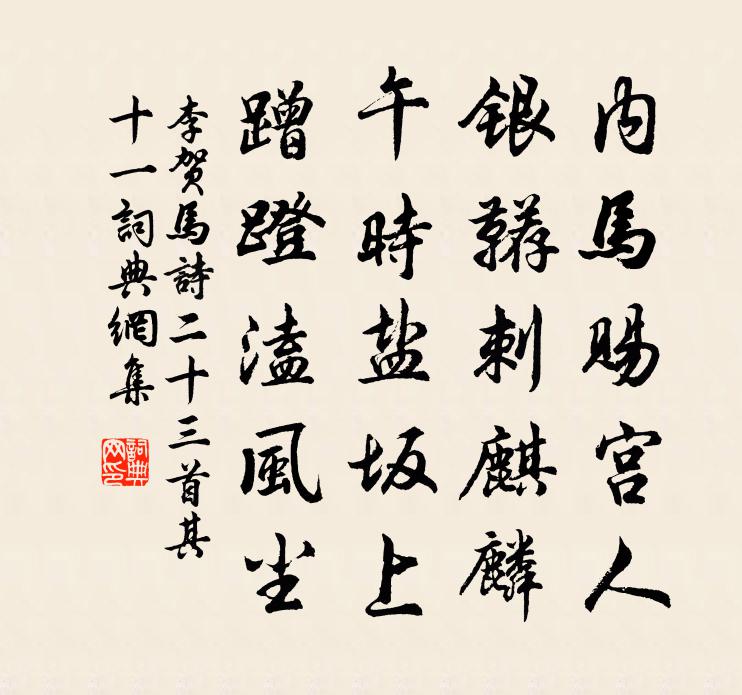 内馬賜宮人
銀韉刺麒麟
午時盐坂上
蹭蹬溘風尘
李賀馬詩二十三首其
十一詞典網集
詞典网印